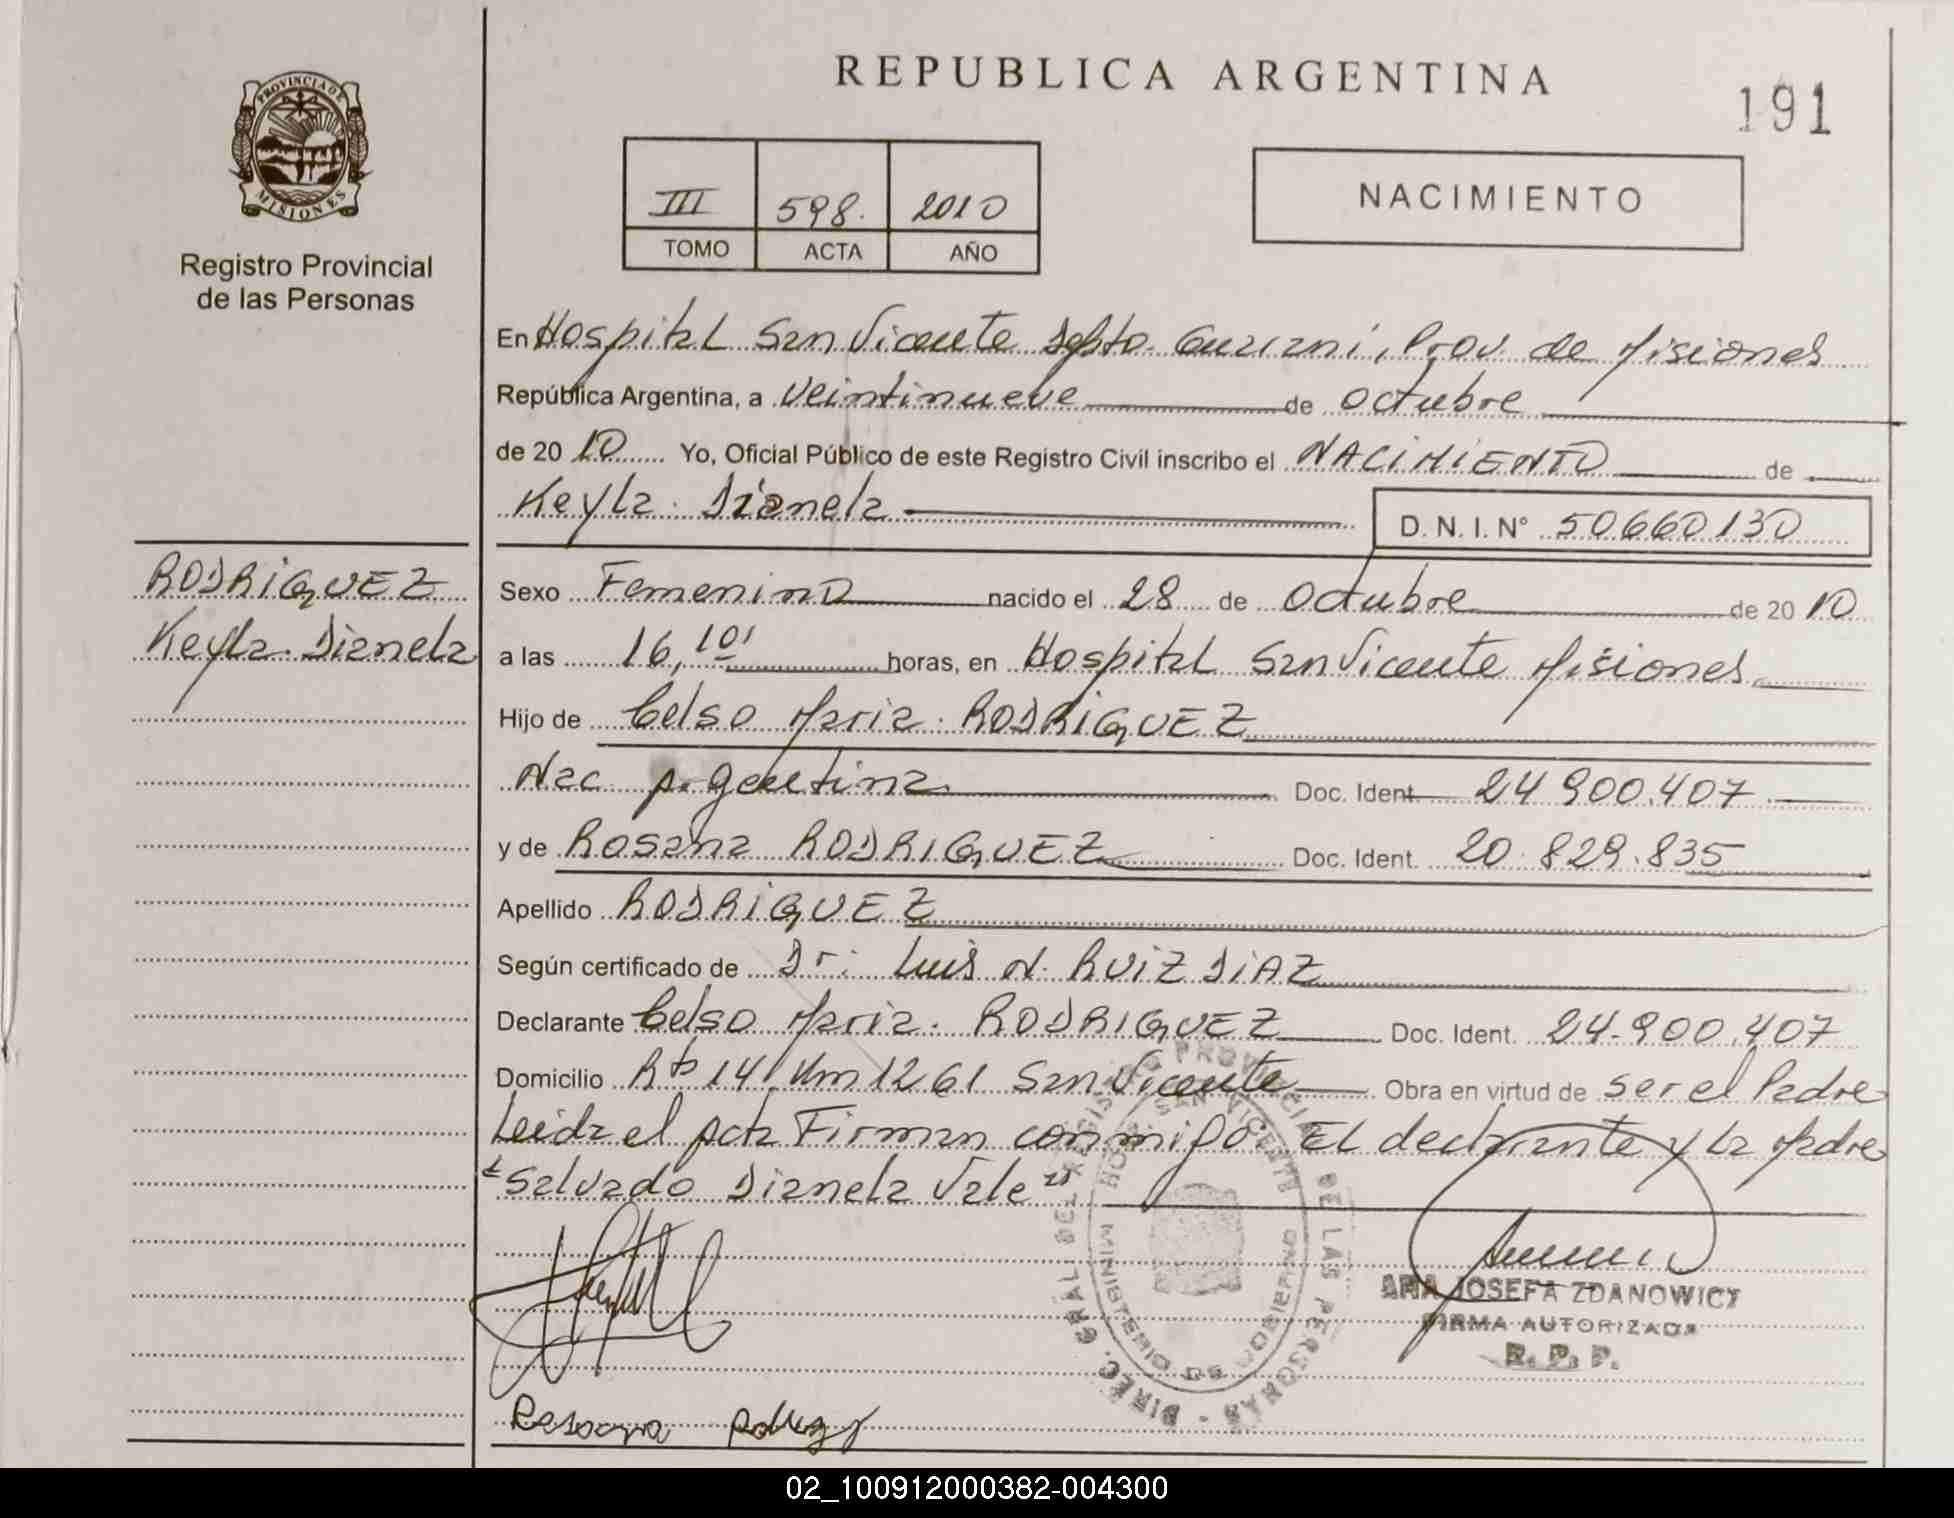 REPUBLICA ARGENTINA
191
PROVINCIA DE
MISIONES
Registro Provincial
de las Personas
III 598. 2010
TOMO ACTA AÑO
NACIMIENTO
En Hospital San Vicente Depto. Guarani, Prov. de Misiones
República Argentina, a veintinueve de octubre
de 2010 Yo, Oficial Público de este Registro Civil inscribo el NACIMIENTO de
Keyla Dianela
D. N. I. N° 50660130
RODRIGUEZ
Keyla Dianela
Sexo Femenino nacido el 28 de octubre de 2010
a las 16,10' horas, en Hospital San Vicente Misiones
Hijo de Celso Maria RODRIGUEZ
Nac Argentina Doc. Ident. 24 900.407
y de Rosana RODRIGUEZ Doc. Ident. 20.829.835
Apellido RODRIGUEZ
Según certificado de Dr: Luis N. RUIZ DIAZ
Declarante Celso Maria. RODRIGUEZ Doc. Ident. 24.900.407
Domicilio Rta 14 Km 1261 San Vicente Obra en virtud de ser el Padre
Leida el Acta Firman conmigo El declarante y La Madre
"Salvado Dianela Vale"
DIREC. GRAL DEL REGISTRO PROVINCIAL DE LAS PERSONAS
MINISTERIO DE GOBIERNO
SAN VICENTE
ANA JOSEFA ZDANOWICZ
FIRMA AUTORIZADA
R. P. P.
02_100912000382-004300